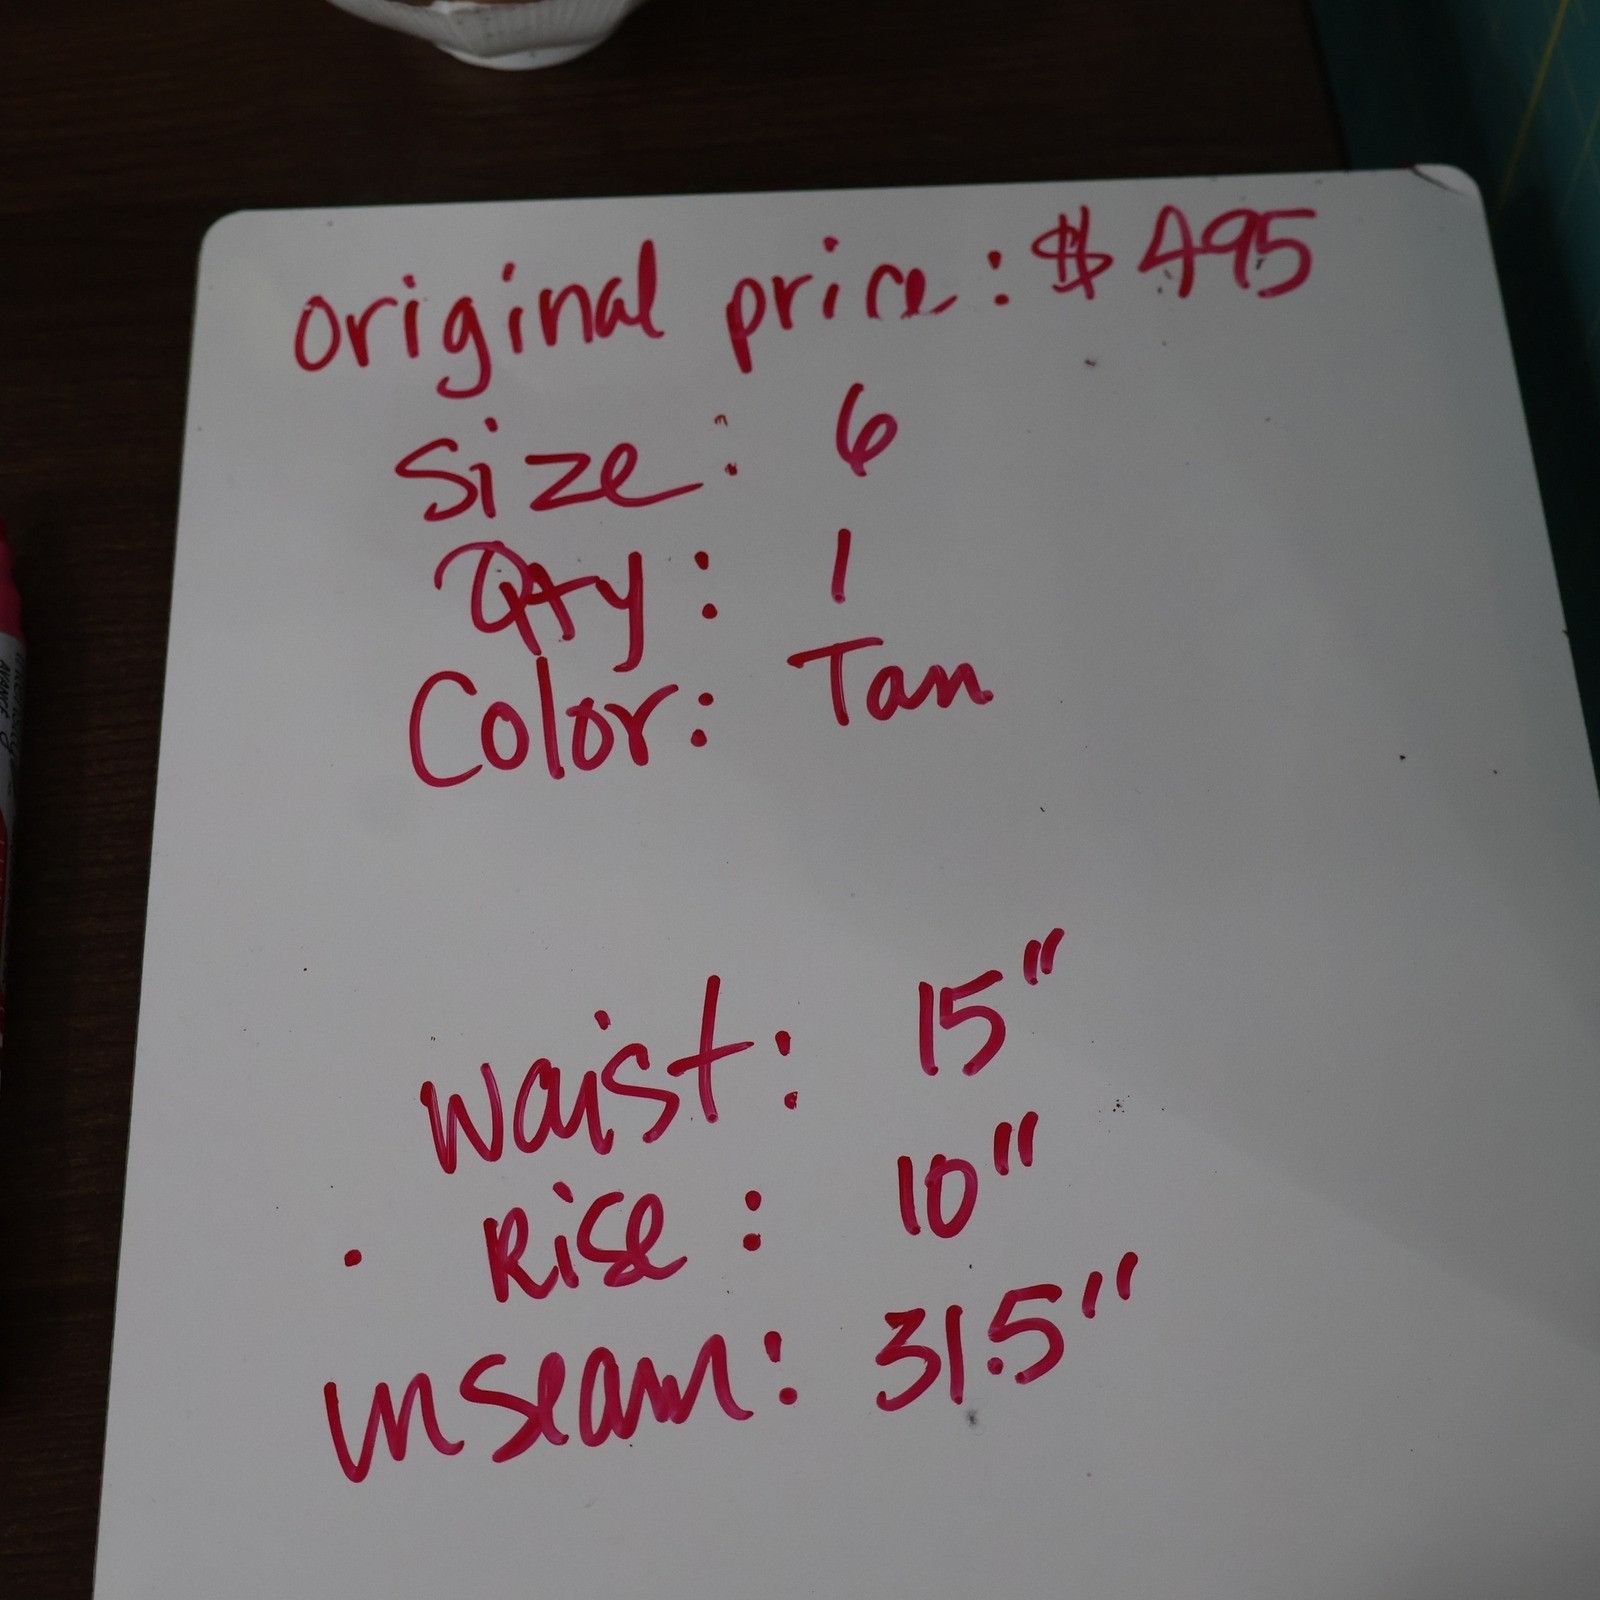 original price: $495
Size: 6
Qty: 1
Color: Tan
Waist: 15"
Rise: 10"
inseam: 31.5"